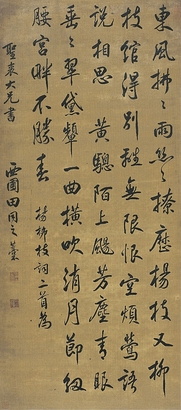 東風拂拂雨絲絲撩歷楊枝又柳
枝綰得別離無限恨空煩鶯語
說相思 黃驄陌上颺芳塵青眼
垂垂翠黛顰一曲橫吹消月節細
腰宮畔不勝春 楊柳枝詞二首為
聖裘大兄書
西圃田同之